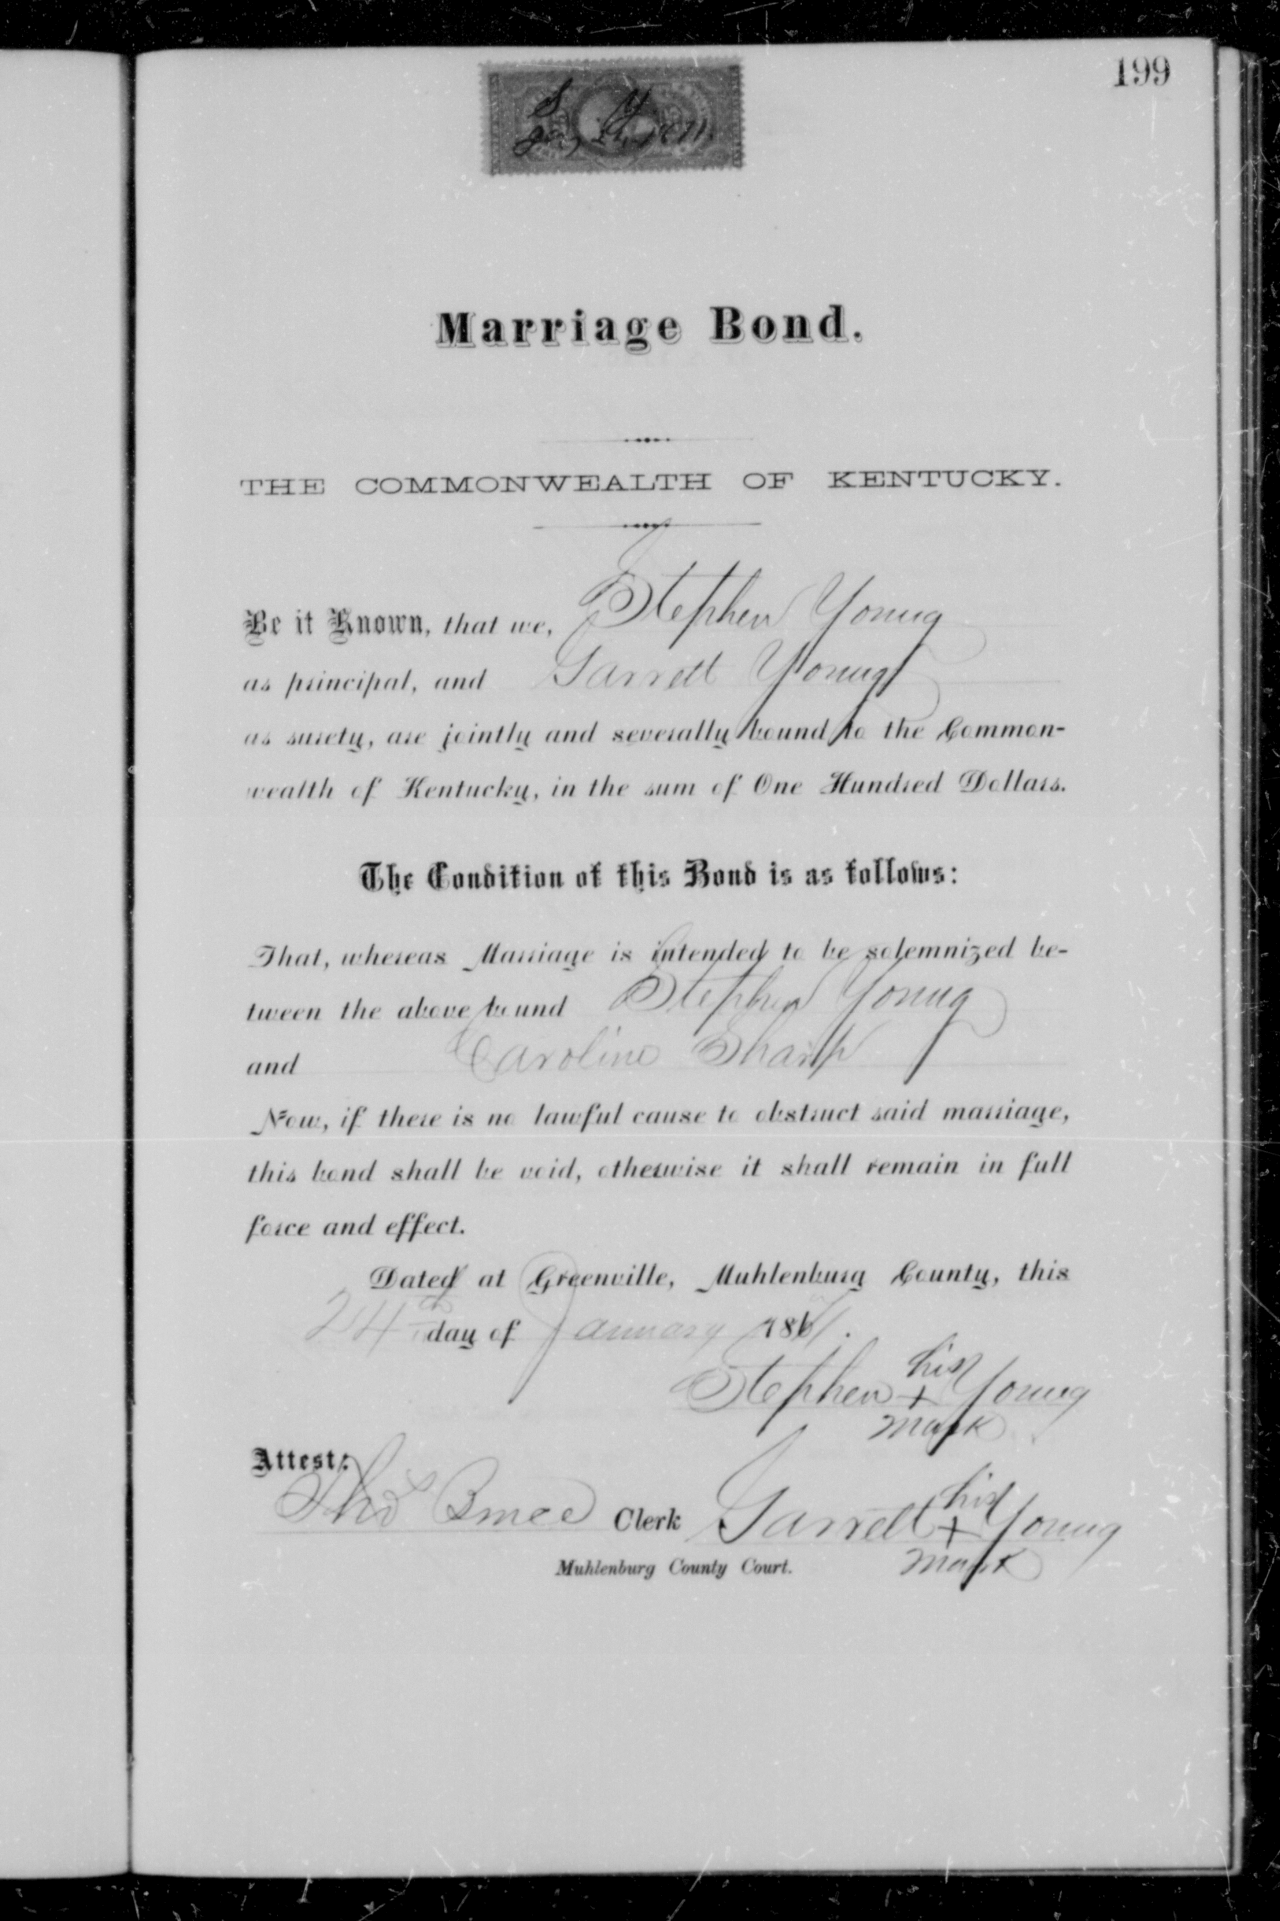 199
S Y
Marriage Bond.
THE COMMONWEALTH OF KENTUCKY.
Be it Known, that we, Stephen Young
as principal, and Garrett Young
as surety, are jointly and severally bound to the Common-
wealth of Kentucky, in the sum of One Hundred Dollars.
The Condition of this Bond is as follows:
That, whereas Marriage is intended to be solemnized be-
tween the above bound Stephen Young
and Caroline Sharp
Now, if there is no lawful cause to obstruct said marriage,
this bond shall be void, otherwise it shall remain in full
force and effect.
Dated at Greenville, Muhlenburg County, this
24th day of January 1871.
his
Stephen + Young
mark
Attest:
Thos Bruce Clerk
his
Garrett + Young
mark
Muhlenburg County Court.